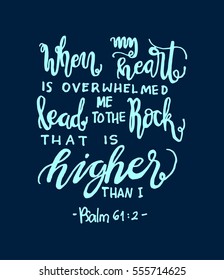 When my heart
IS OVERWHELMED
lead ME TO THE Rock
THAT IS
higher
THAN I
- Psalm 61:2 -
shutterstock.com · 555714625